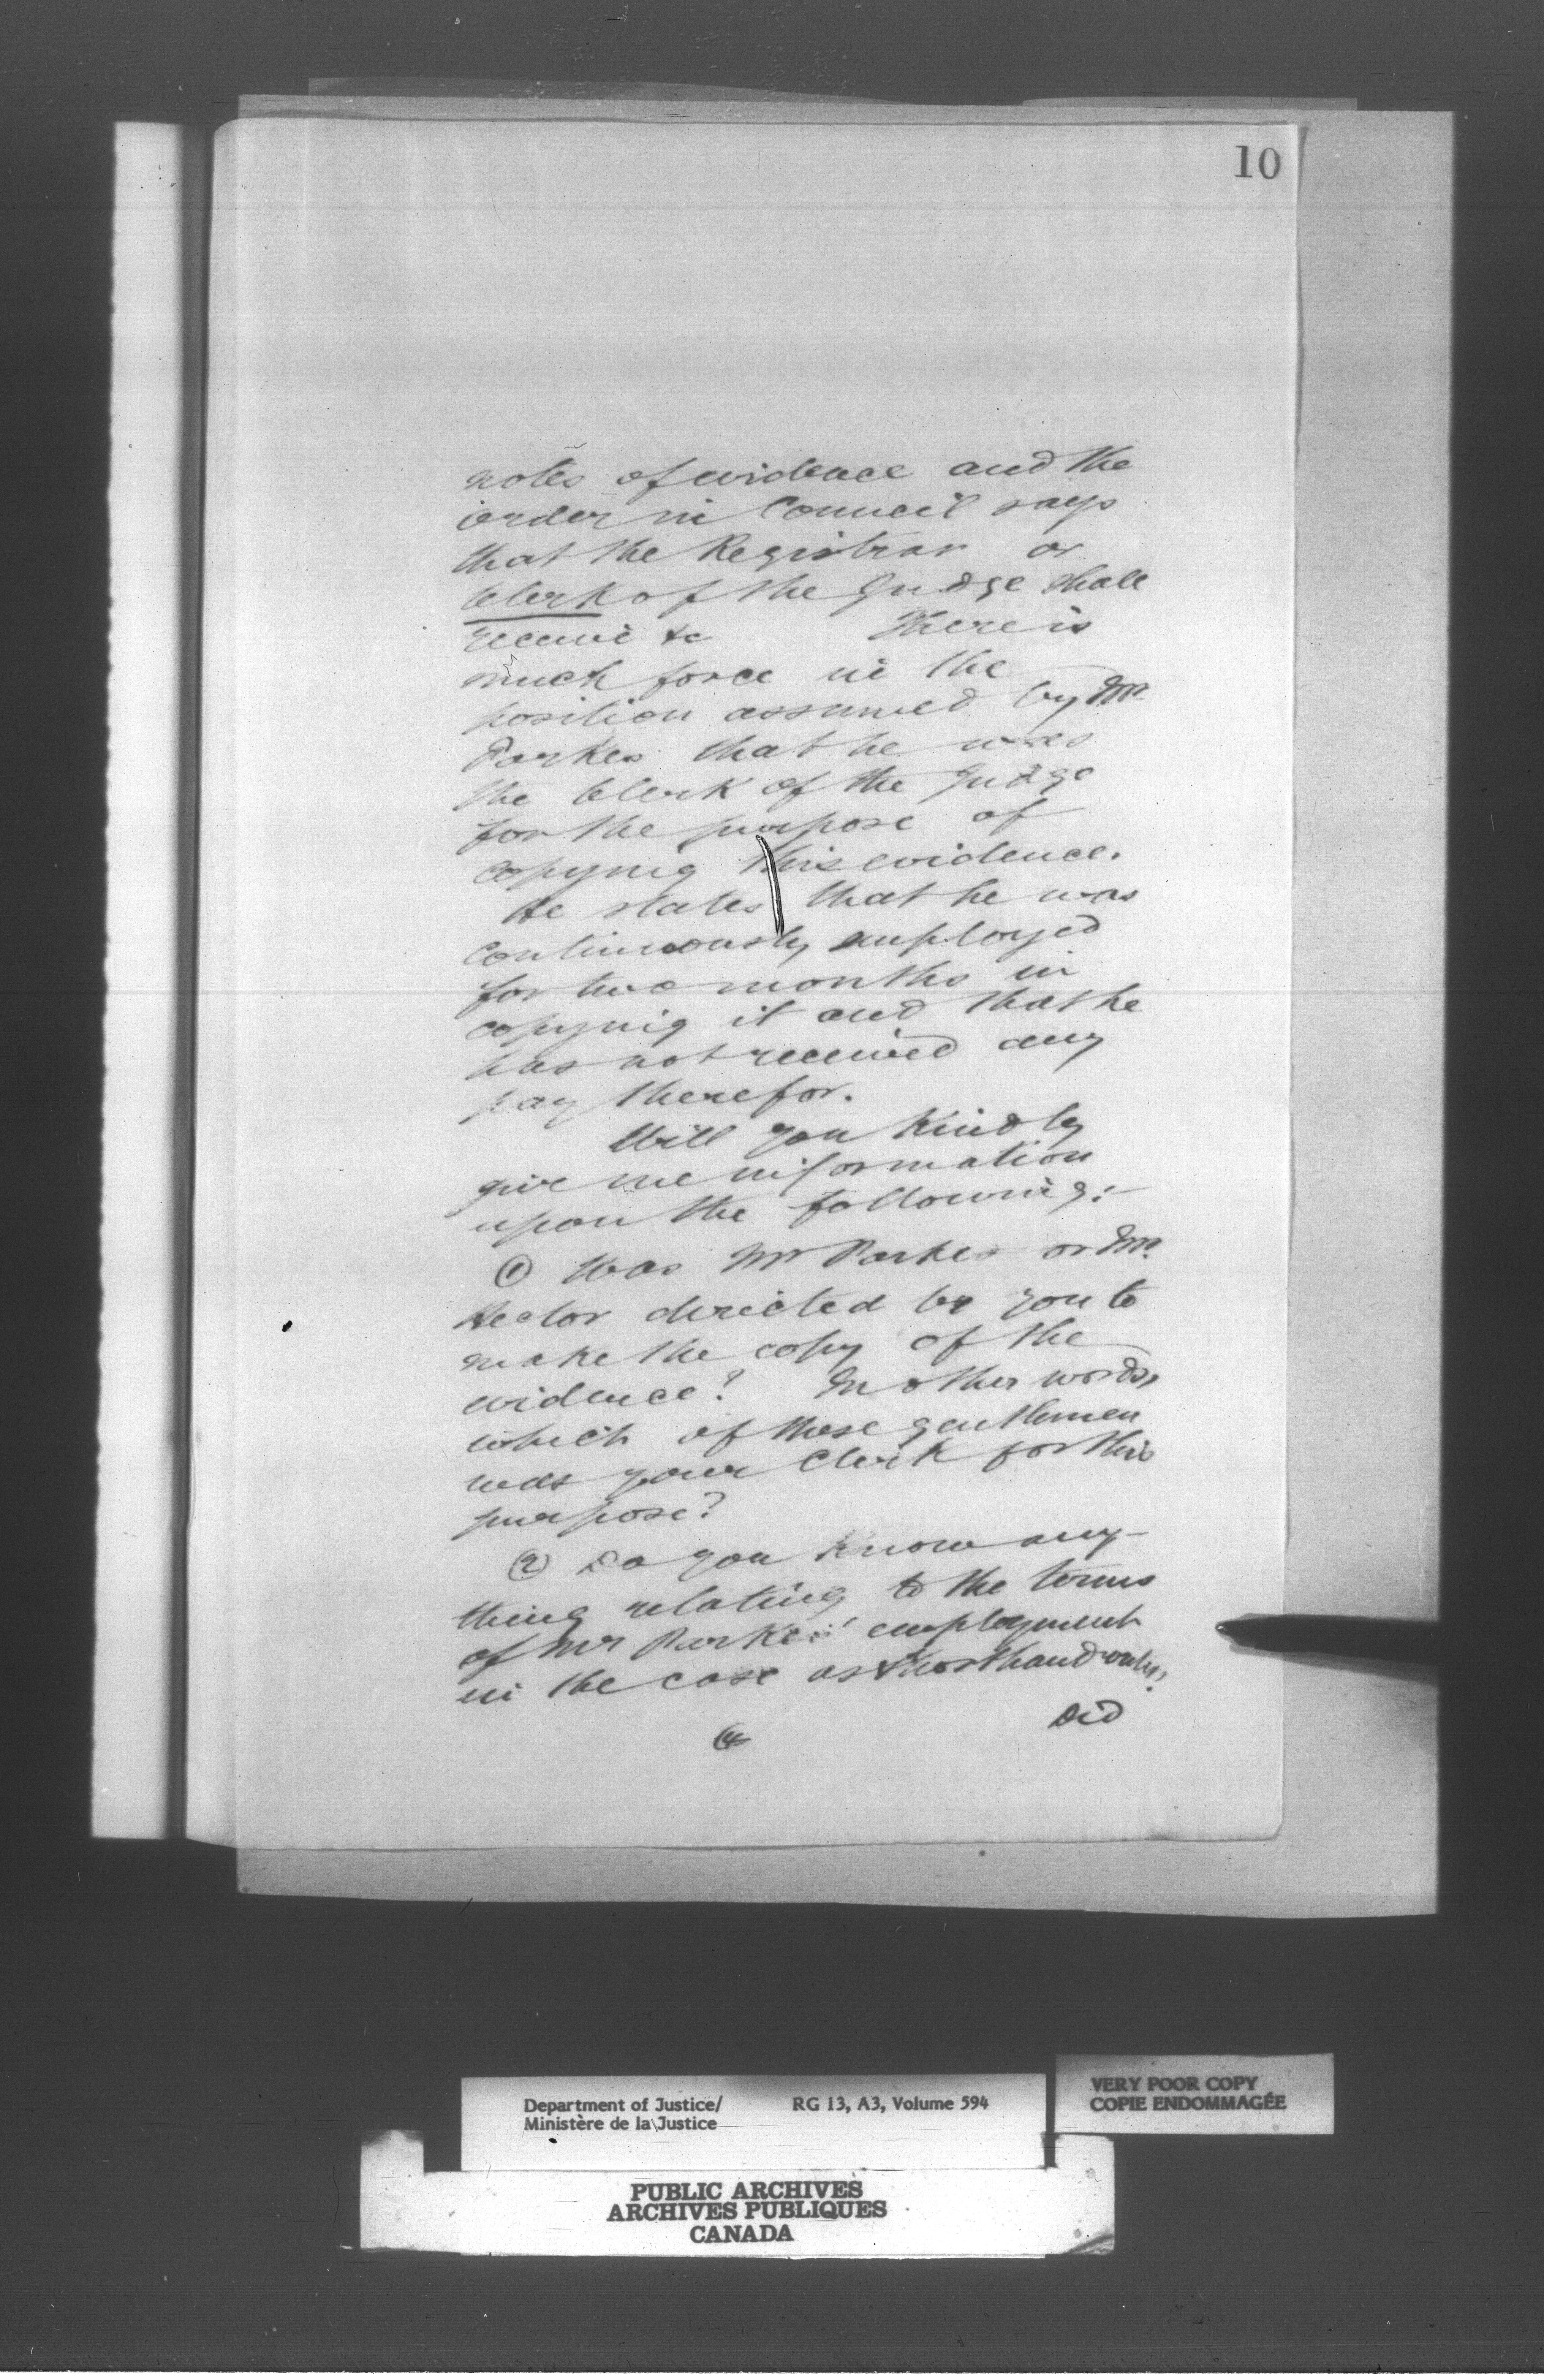 10
notes of evidence and the
order in Council says
that the Registrar or
Clerk of the Judge shall
receive &c There is
much force in the
position assumed by Mr
Parkes that he was
the Clerk of the Judge
for the purpose of
copying this evidence.
He states that he was
continuously employed
for two months in
copying it and that he
has not received any
pay therefor.
Will you kindly
give me information
upon the following:-
(1) Was Mr Parkes or Mr.
Hector directed by you to
make the copy of the
evidence? In other words,
which of these gentlemen
was your Clerk for this
purpose?
(2) Do you know any-
thing relating to the terms
of Mr Parkes' employment
in the case as shorthand writer?
Did
Department of Justice/ RG 13, A3, Volume 594
Ministère de la Justice
VERY POOR COPY
COPIE ENDOMMAGÉE
PUBLIC ARCHIVES
ARCHIVES PUBLIQUES
CANADA